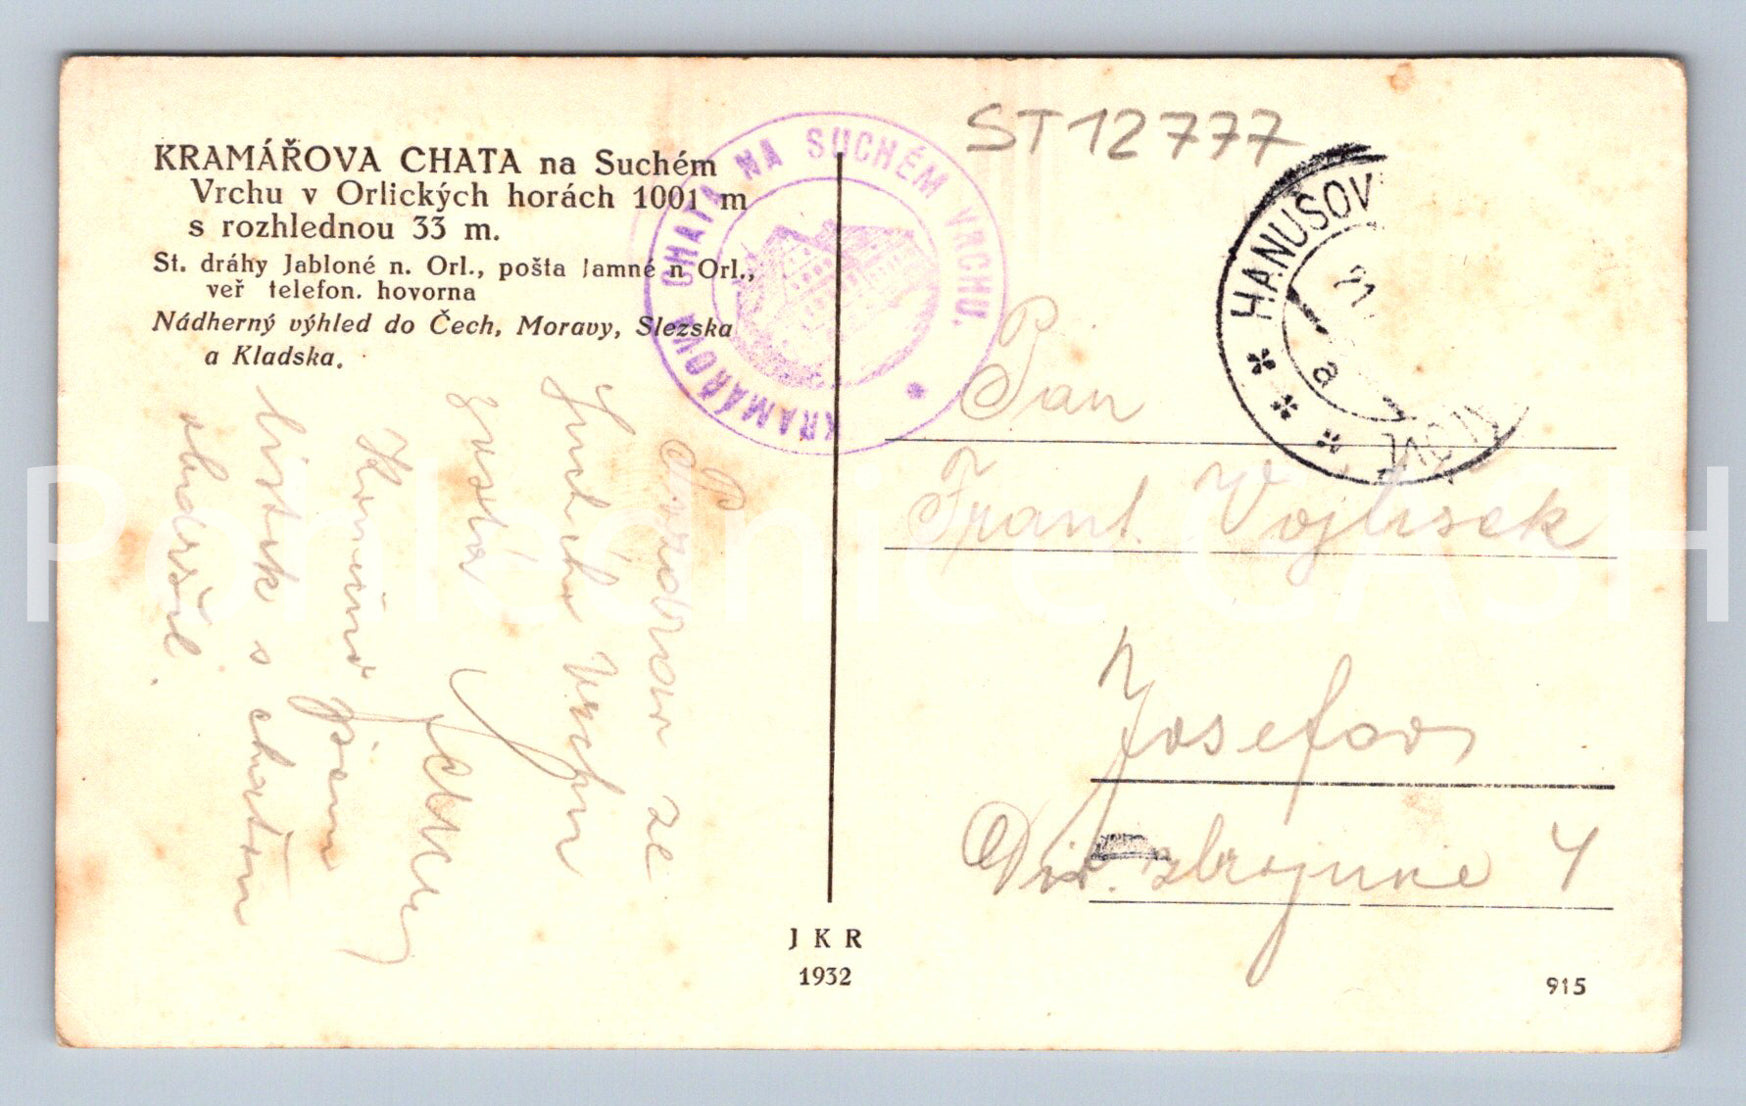 KRAMÁŘOVA CHATA na Suchém
Vrchu v Orlických horách 1001 m
s rozhlednou 33 m.
St. dráhy Jabloné n. Orl., pošta Jamné n Orl.,
veř telefon. hovorna
Nádherný výhled do Čech, Moravy, Slezska
a Kladska.
KRAMÁŘOVA CHATA NA SUCHÉM VRCHU.
ST12777
HANUŠOV
a
Pozdrav ze
Suchého Vrchu
lístek s chatou
obdržel.
Pan
Frant. Vojtíšek
Josefov
Div. zbrojnice 4
J K R
1932
915
Pohlednice CASH